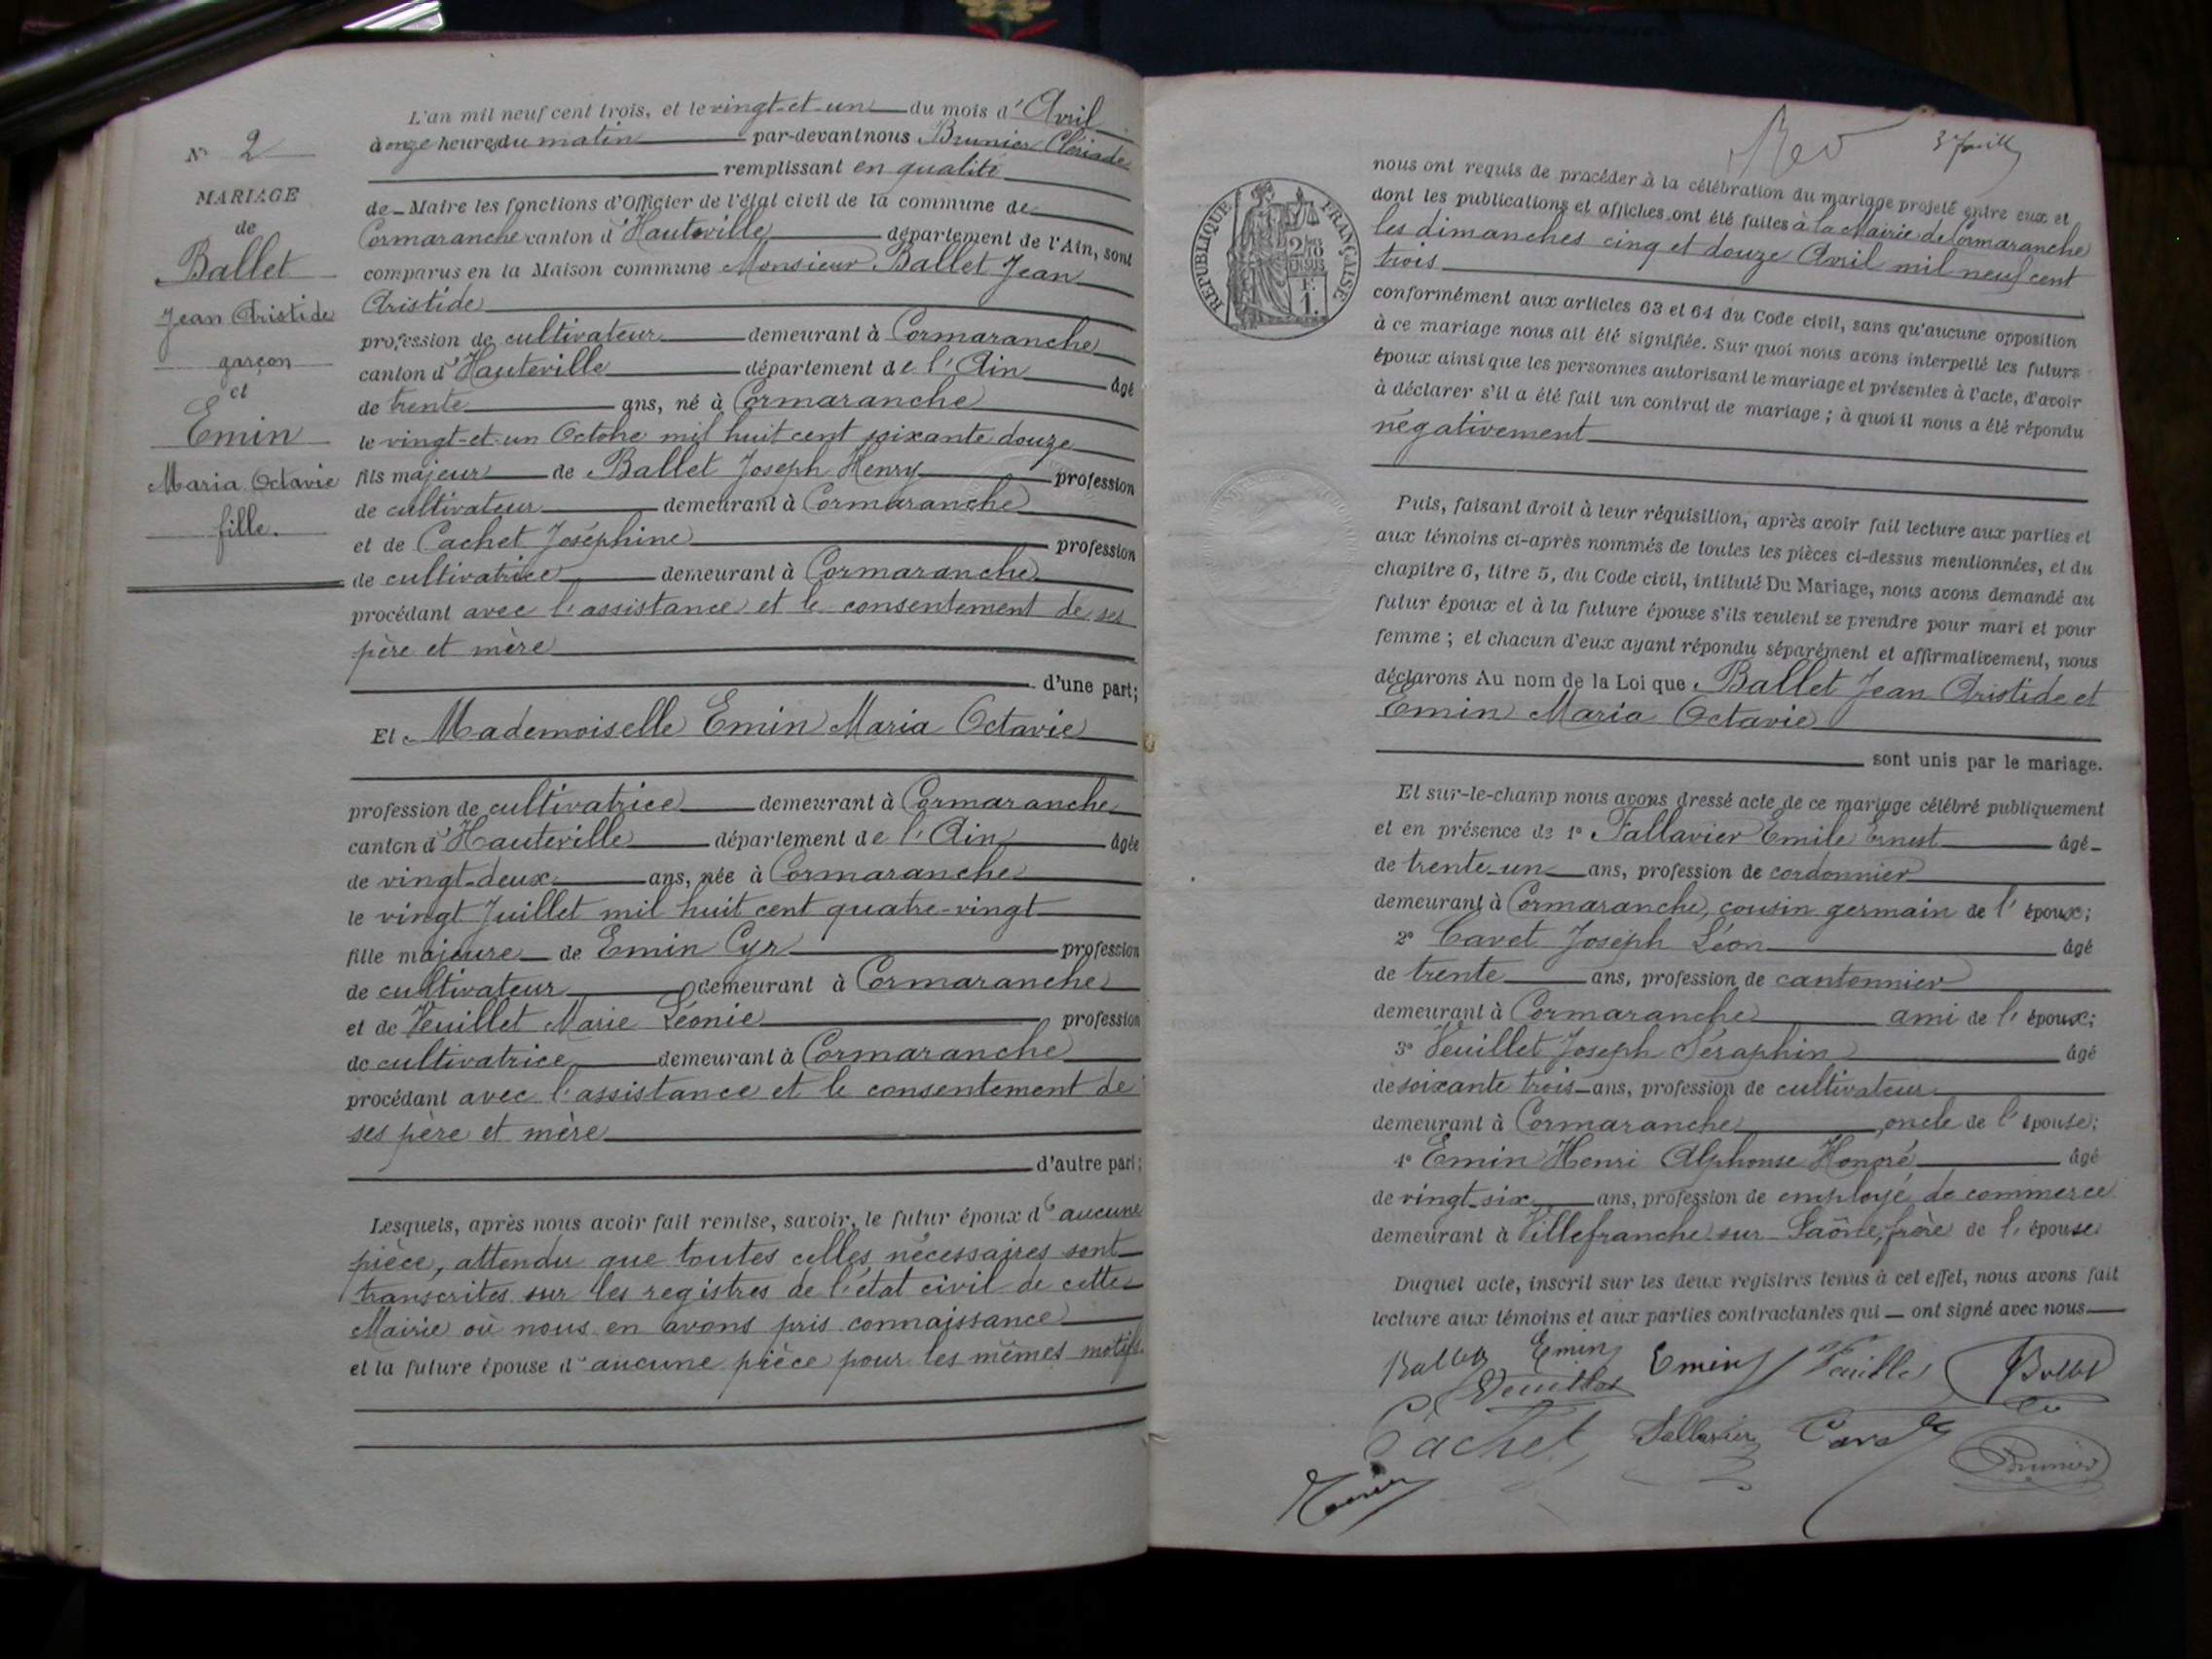 N° 2
MARIAGE
de
Ballet
Jean Aristide
garçon
et
Emin
Maria Octavie
fille.
L'an mil neuf cent trois, et le vingt-et-un du mois d'Avril
à onze heures du matin par-devant nous Brunier Clériade
remplissant en qualité
de Maire les fonctions d'Officier de l'état civil de la commune de
Cormaranche canton d'Hauteville département de l'Ain, sont
comparus en la Maison commune Monsieur Ballet Jean
Aristide
profession de cultivateur demeurant à Cormaranche
canton d'Hauteville département de l'Ain âgé
de trente ans, né à Cormaranche
le vingt-et-un Octobre mil huit cent soixante douze
fils majeur de Ballet Joseph Henry profession
de cultivateur demeurant à Cormaranche
et de Cachet Joséphine profession
de cultivatrice demeurant à Cormaranche
procédant avec l'assistance et le consentement de ses
père et mère
d'une part;
Et Mademoiselle Emin Maria Octavie
profession de cultivatrice demeurant à Cormaranche
canton d'Hauteville département de l'Ain âgée
de vingt-deux ans, née à Cormaranche
le vingt Juillet mil huit cent quatre-vingt
fille majeure de Emin Cyr profession
de cultivateur demeurant à Cormaranche
et de Veuillet Marie Léonie profession
de cultivatrice demeurant à Cormaranche
procédant avec l'assistance et le consentement de
ses père et mère
d'autre part;
Lesquels, après nous avoir fait remise, savoir, le futur époux d'aucune
pièce, attendu que toutes celles nécessaires sont
transcrites sur les registres de l'état civil de cette
Mairie où nous en avons pris connaissance
et la future épouse d'aucune pièce pour les mêmes motifs.
REPUBLIQUE FRANÇAISE
nous ont requis de procéder à la célébration du mariage projeté entre eux et
dont les publications et affiches ont été faites à la Mairie de Cormaranche
les dimanches cinq et douze Avril mil neuf cent
trois
conformément aux articles 63 et 64 du Code civil, sans qu'aucune opposition
à ce mariage nous ait été signifiée. Sur quoi nous avons interpellé les futurs
époux ainsi que les personnes autorisant le mariage et présentes à l'acte, d'avoir
à déclarer s'il a été fait un contrat de mariage; à quoi il nous a été répondu
négativement
Puis, faisant droit à leur réquisition, après avoir fait lecture aux parties et
aux témoins ci-après nommés de toutes les pièces ci-dessus mentionnées, et du
chapitre 6, titre 5, du Code civil, intitulé Du Mariage, nous avons demandé au
futur époux et à la future épouse s'ils veulent se prendre pour mari et pour
femme; et chacun d'eux ayant répondu séparément et affirmativement, nous
déclarons Au nom de la Loi que Ballet Jean Aristide et
Emin Maria Octavie
sont unis par le mariage.
Et sur-le-champ nous avons dressé acte de ce mariage célébré publiquement
et en présence de 1° Fallavier Emile Ernest âgé
de trente-un ans, profession de cordonnier
demeurant à Cormaranche, cousin germain de l'époux;
2° Cavet Joseph Léon âgé
de trente ans, profession de cantonnier
demeurant à Cormaranche ami de l'époux;
3° Veuillet Joseph Séraphin âgé
de soixante trois ans, profession de cultivateur
demeurant à Cormaranche, oncle de l'épouse;
4° Emin Henri Alphonse Honoré âgé
de vingt-six ans, profession de employé de commerce
demeurant à Villefranche sur Saône, frère de l'épouse
Duquel acte, inscrit sur les deux registres tenus à cet effet, nous avons fait
lecture aux témoins et aux parties contractantes qui ont signé avec nous
Ballet Emin Emin Veuillet Ballet
Veuillet
Cachet Fallavier Cavet
Brunier